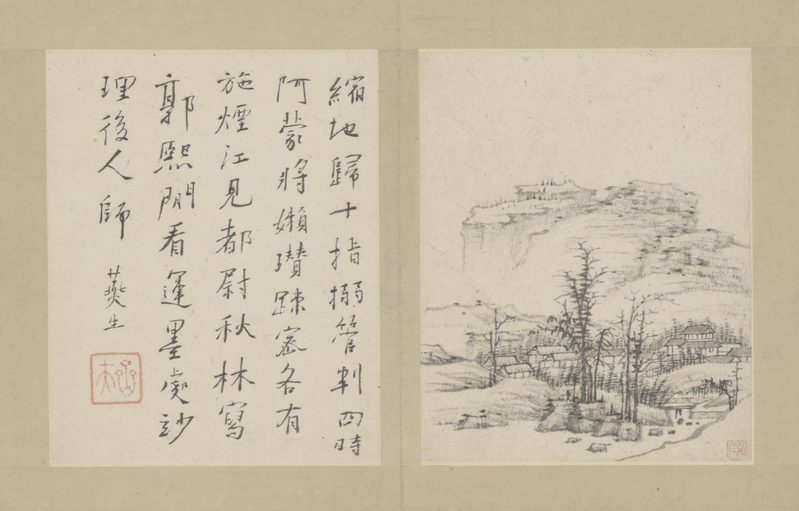 縮地歸十指搦管判四時
阿蒙將嬾瓚踈密各有
施煙江見都尉秋林寫
郭熙閒看運墨處玅
理後人師
燕生